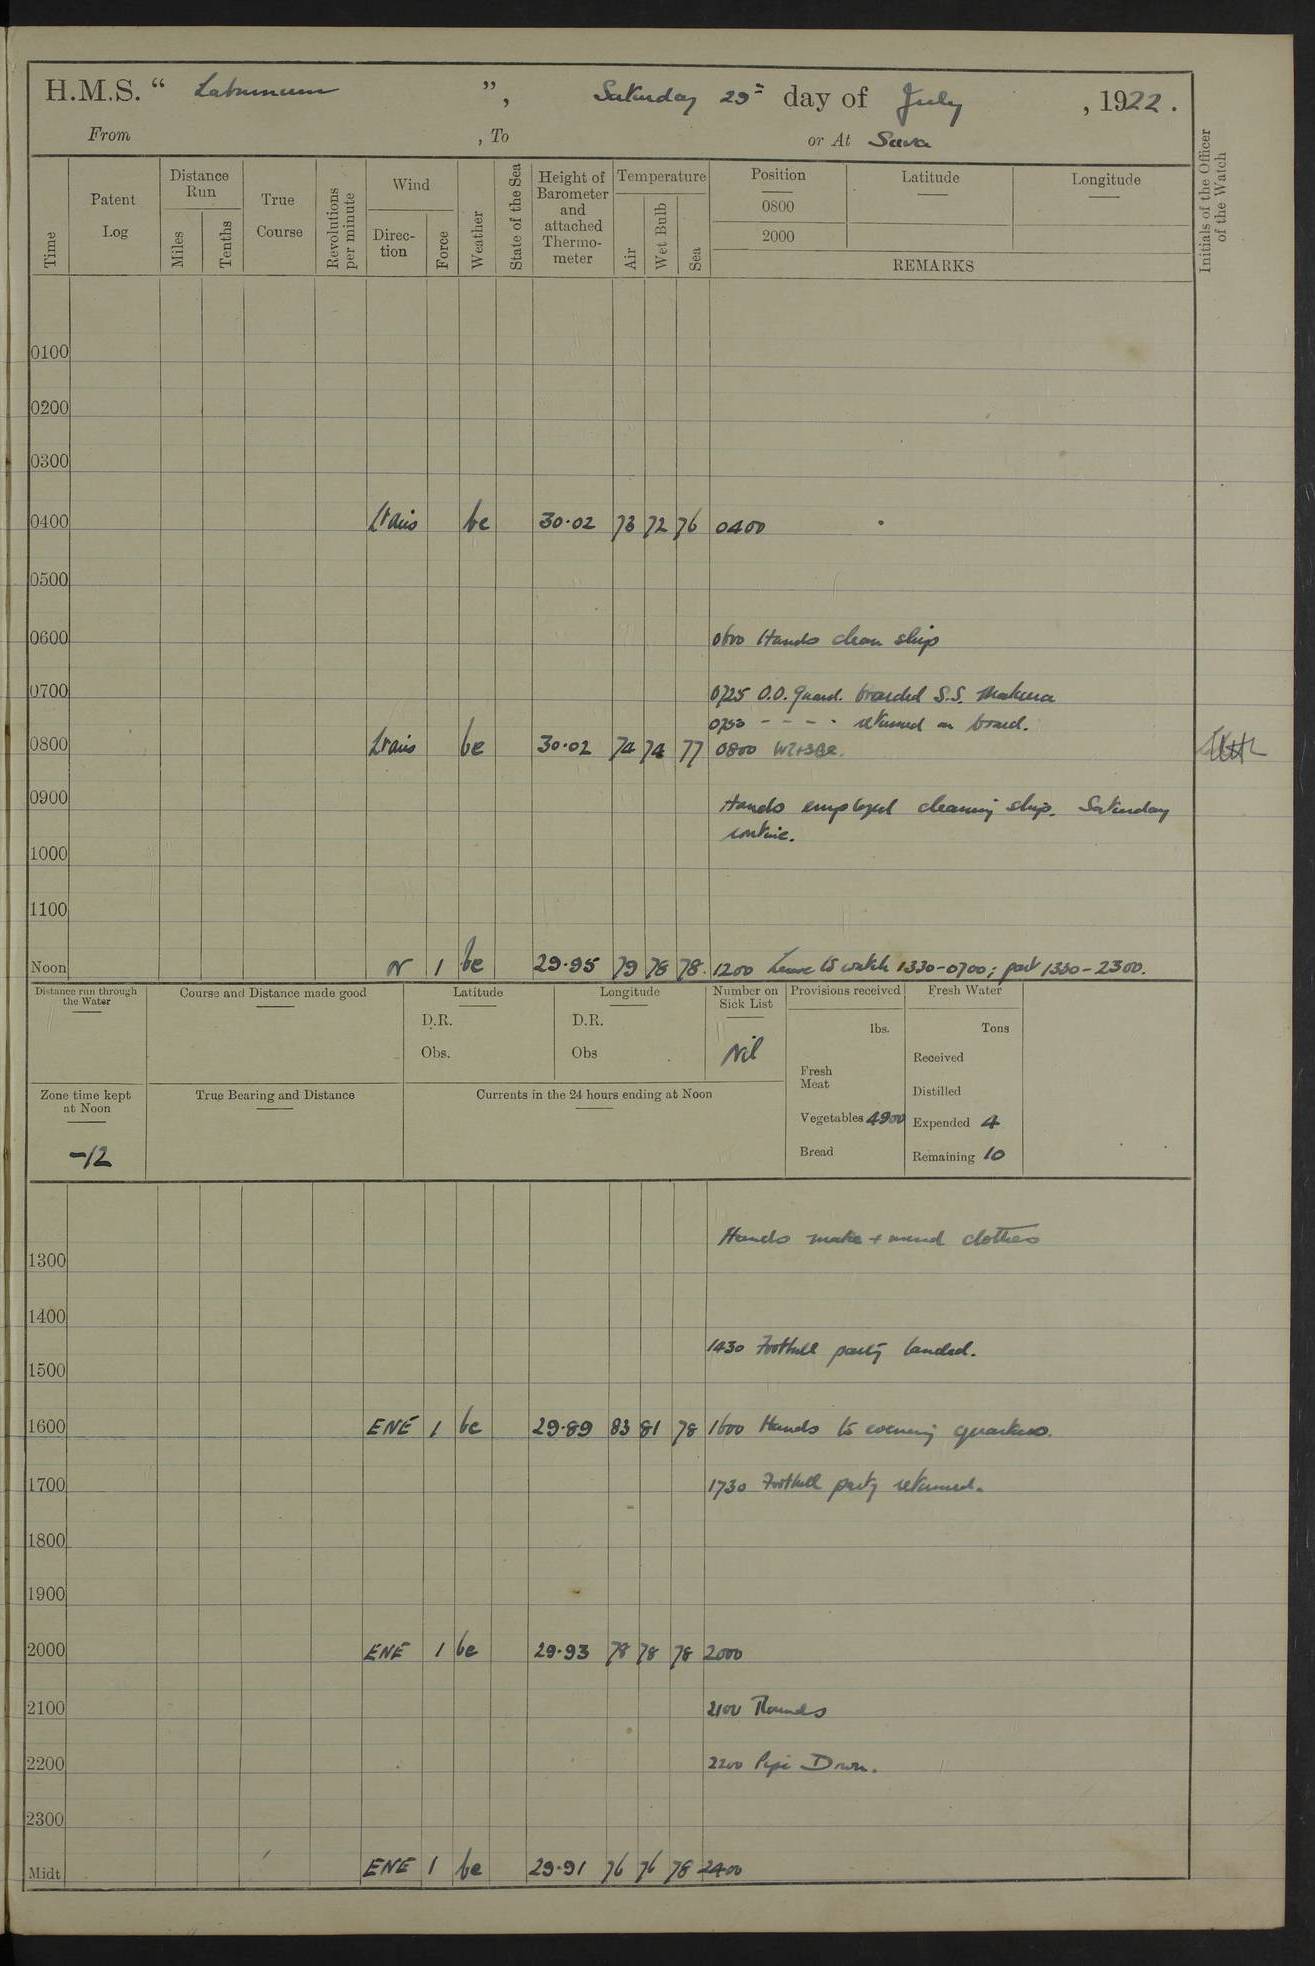 H.M.S. " Laburnum ", Saturday 29th day of July , 1922.
From , To or At Suva
Time
Patent Log
Distance Run
Miles
Tenths
True Course
Revolutions per minute
Wind
Direction
Force
Weather
State of the Sea
Height of Barometer and attached Thermometer
Temperature
Air
Wet Bulb
Sea
Position Latitude Longitude
0800
2000
REMARKS
Initials of the Officer of the Watch
0100
0200
0300
0400 Lt airs bc 30.02 73 72 76 0400
0500
0600 0600 Hands clean ship
0700 0725 O.O. Guard. boarded S.S. Makura
0750 - - - - returned on board.
0800 Lt airs bc 30.02 74 74 77 0800
0900 Hands employed cleaning ship. Saturday
routine.
1000
1100
Noon N 1 bc 29.95 79 78 78. 1200 Leave to watch 1330-0700; part 1330-2300.
Distance run through the Water
Course and Distance made good
Latitude
D.R.
Obs.
Longitude
D.R.
Obs
Number on Sick List
Nil
Provisions received
lbs.
Fresh Meat
Vegetables 4900
Bread
Fresh Water
Tons
Received
Distilled
Expended 4
Remaining 10
Zone time kept at Noon
-12
True Bearing and Distance
Currents in the 24 hours ending at Noon
Hands make + mend clothes
1300
1400
1430 Football party landed.
1500
1600 ENE 1 bc 29.89 83 81 78 1600 Hands to evening quarters.
1700 1730 Football party returned.
1800
1900
2000 ENE 1 bc 29.93 78 78 78 2000
2100 2100 Rounds
2200 2200 Pipe Down.
2300
Midt ENE 1 bc 29.91 76 76 78 2400